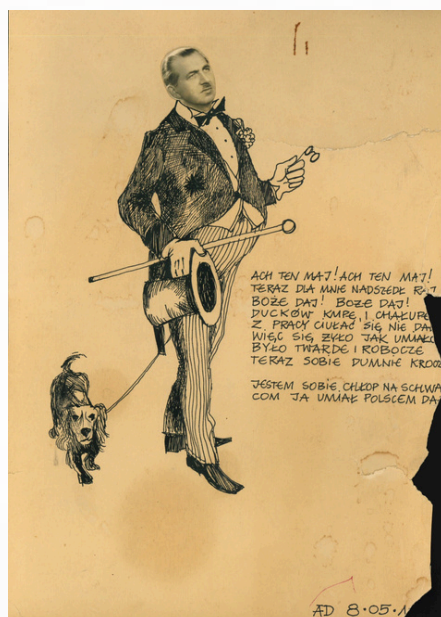 ACH TEN MAJ! ACH TEN MAJ!
TERAZ DLA MNIE NADSZEDŁ RAJ
BOŻE DAJ! BOŻE DAJ!
DUCKÓW KUPĘ, I CHAŁUPĘ
Z PRACY CIUŁAĆ SIĘ NIE
WIĘC SIĘ ŻYŁO JAK
BYŁO TWARDE I ROBOCZE
TERAZ SOBIE DUMNIE
JESTEM SOBIE CHŁOP NA
COM JA UMIAŁ POLSCEM
AD 8.05.